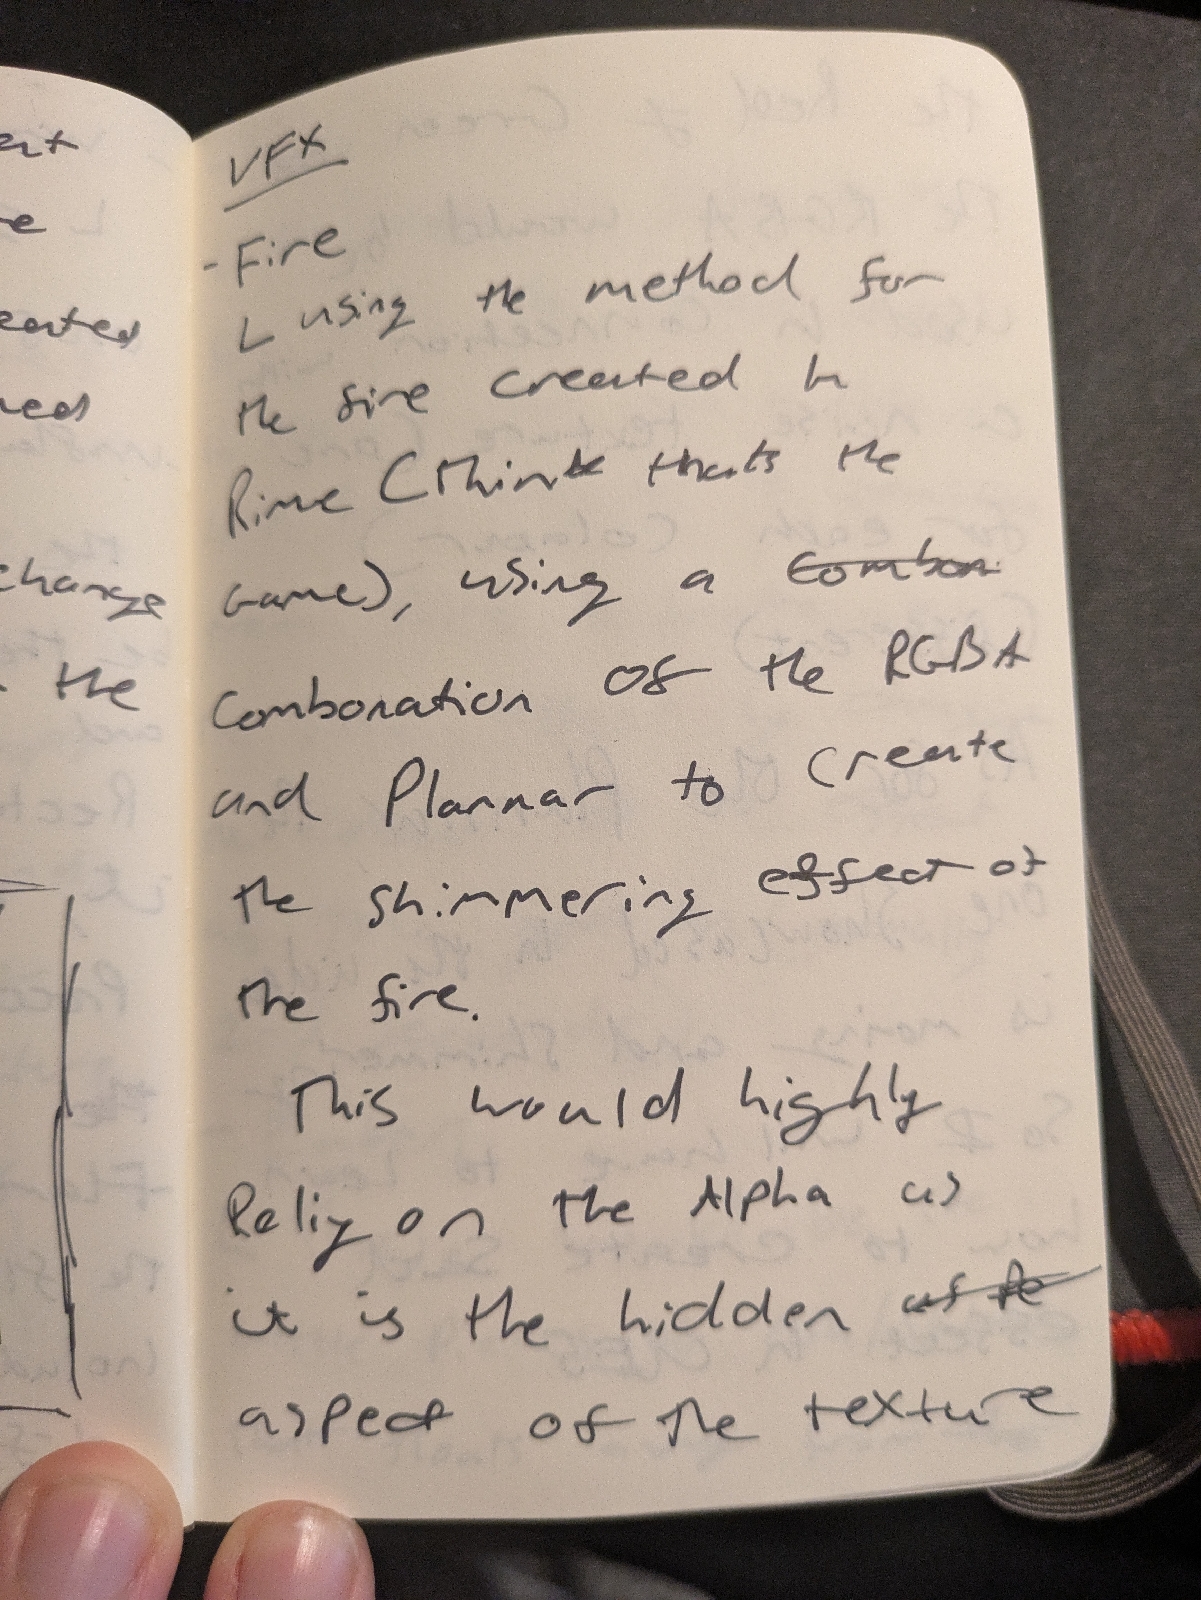 ent
re
eated
need
change
the
VFX
- Fire
L using the method for
the fire created in
Rime (think thats the
Game), using a combon
Combonation of the RGBA
and Plannar to create
the shimmering effect of
the fire.
This would highly
Reliy on the Alpha as
it is the hidden
aspect of the texture